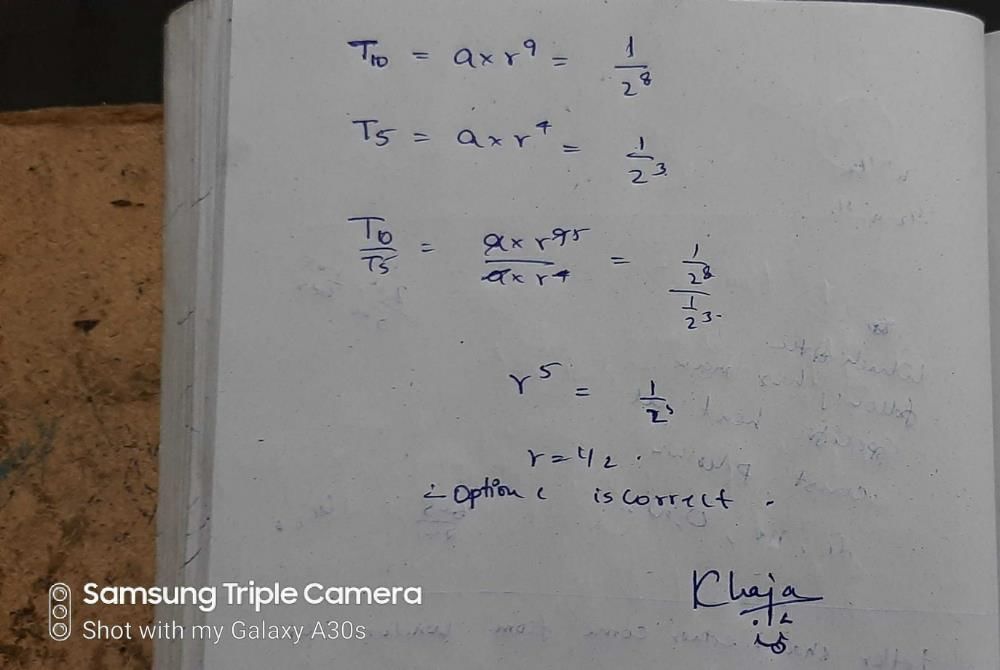 T10 = a x r^9 = 1/2^8
T5 = a x r^4 = 1/2^3
T10/T5 = a x r^9 5 / a x r^4 = 1/2^8 / 1/2^3
r^5 = 1/2^5
r = 1/2 .
∴ Option C is correct .
Khaja
Samsung Triple Camera
Shot with my Galaxy A30s